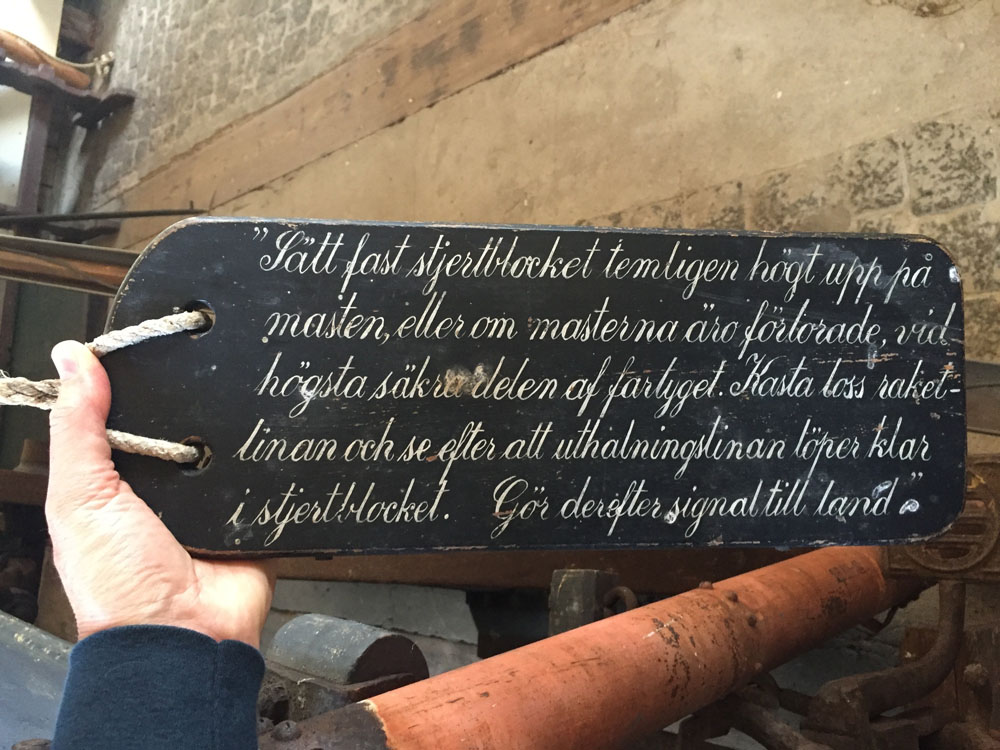 "Sätt fast stjertblocket temligen högt upp på
masten, eller om masterna äro förlorade, vid
högsta säkra delen af fartyget. Kasta loss raket-
linan och se efter att uthalningslinan löper klar
i stjertblocket. Gör derefter signal till land."